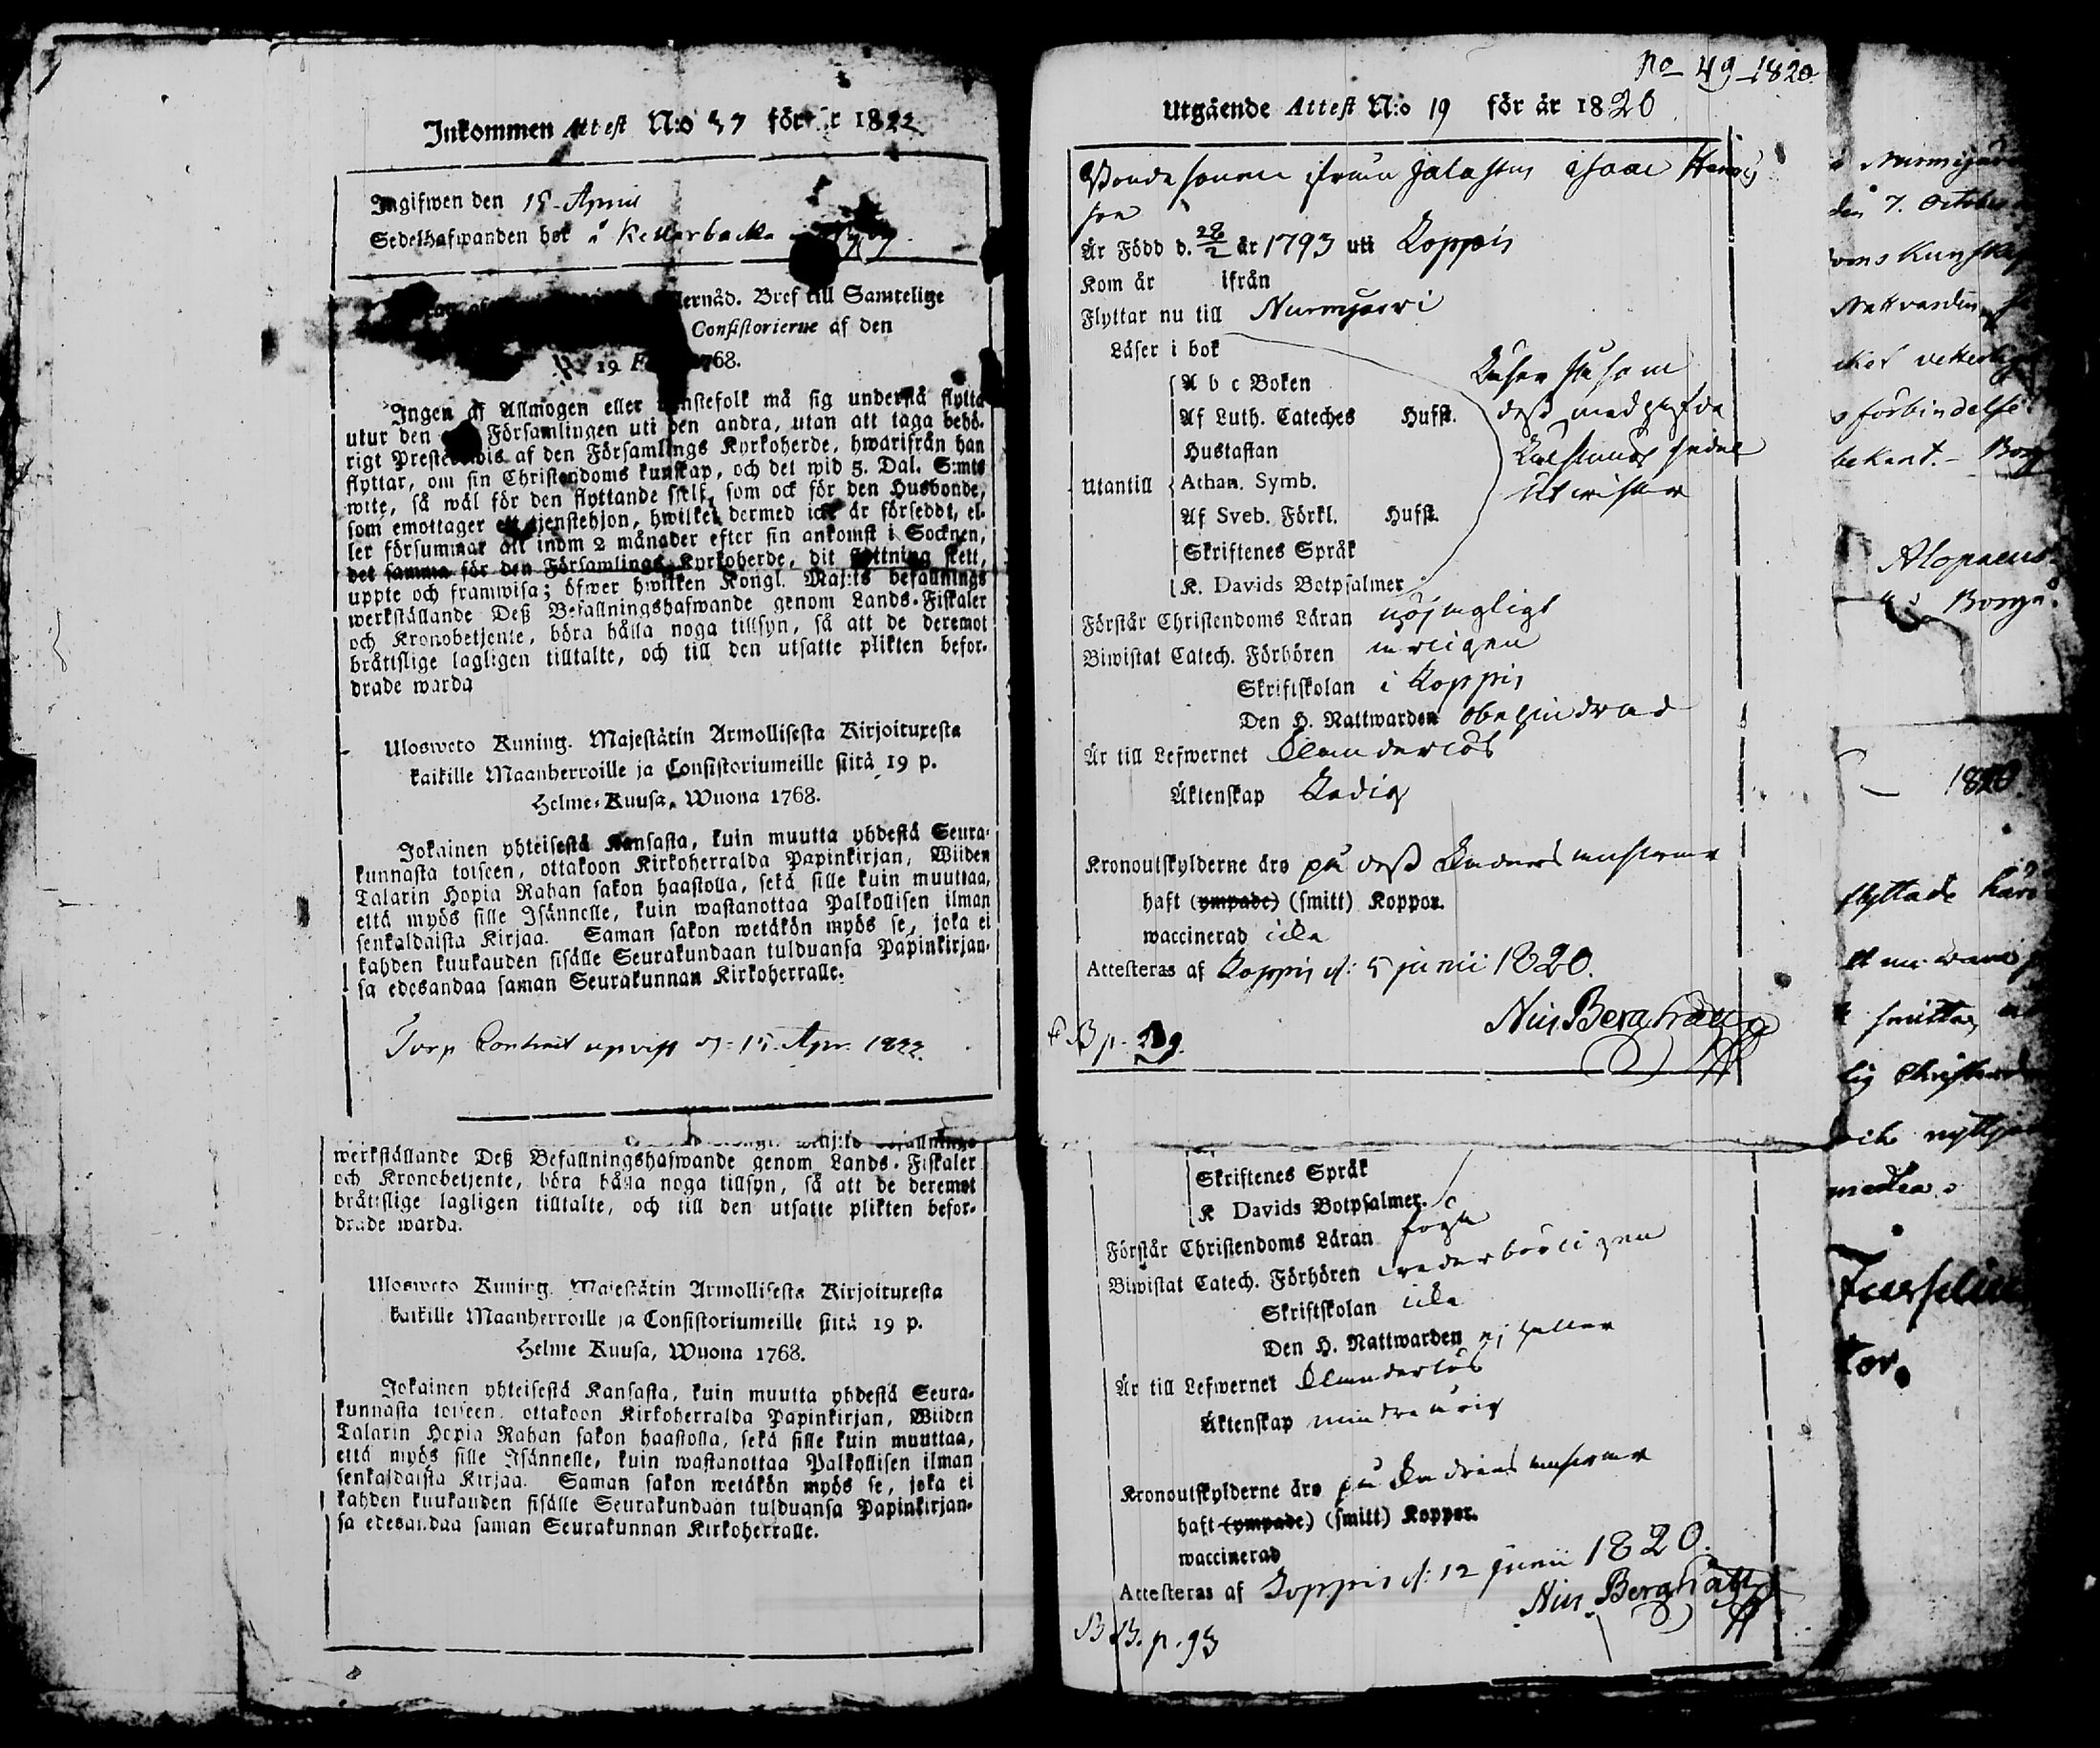 Inkommen Attest N:o 37 för år 1822
Ingifwen den 15 April
Sedelhafwanden bor å Kellarbacka
Bref till Samtelige
Consistorierne af den
19 1768.
Ingen af Allmogen eller tjenstefolk må sig understå flytta
utur den Församlingen uti den andra, utan att taga behö-
rigt Prestebewis af den Församlings Kyrkoherde, hwarifrån han
flyttar, om sin Christendoms kunskap, och det wid 5. Dal. S:mts
wite, så wäl för den flyttande sjelf, som ock för den Husbonde,
som emottager ett tjenstehjon, hwilket dermed icke är försedt, el-
ler försummar att inom 2 månader efter sin ankomst i Socknen,
det samma för den Församlings Kyrkoherde, dit flyttning skett,
uppte och framwisa; öfwer hwilken Kongl. Maj:ts befallnings
werkställande Deß Befallningshafwande genom Lands-Fiskaler
och Kronobetjente, böra hålla noga tillsyn, så att de deremot
bråttslige lagligen tilltalte, och till den utsatte plikten befor-
drade warda
Ulosweto Kuning. Majestätin Armollisesta Kirjoituxesta
kaikille Maanherroille ja Consistoriumeille siitä 19 p.
Helme-Kuusa, Wuona 1768.
Jokainen yhteisestä Kansasta, kuin muutta yhdestä Seura-
kunnasta toiseen, ottakoon Kirkoherralda Papinkirjan, Wiiden
Talarin Hopia Rahan sakon haastolla, sekä sille kuin muuttaa,
että myös sille Isännelle, kuin wastanottaa Palkollisen ilman
senkaldaista Kirjaa. Saman sakon wetäkön myös se, joka ei
kahden kuukauden sisälle Seurakundaan tulduansa Papinkirjan-
sa edesandaa saman Seurakunnan Kirkoherralle.
Torp Contract upvist d. 15 Apr. 1822.
werkställande Deß Befallningshafwande genom Lands-Fiskaler
och Kronobetjente, böra hålla noga tillsyn, så att de deremot
bråttslige lagligen tilltalte, och till den utsatte plikten befor-
drade warda.
Ulosweto Kuning. Majestätin Armollisesta Kirjoituxesta
kaikille Maanherroille ja Consistoriumeille siitä 19 p.
Helme Kuusa, Wuona 1768.
Jokainen yhteisestä Kansasta, kuin muutta yhdestä Seura-
kunnasta toiseen, ottakoon Kirkoherralda Papinkirjan, Wiiden
Talarin Hopia Rahan sakon haastolla, sekä sille kuin muuttaa,
että myös sille Isännelle, kuin wastanottaa Palkollisen ilman
senkaldaista Kirjaa. Saman sakon wetäkön myös se, joka ei
kahden kuukauden sisälle Seurakundaan tulduansa Papinkirjan-
sa edesandaa saman Seurakunnan Kirkoherralle.
No 49 1820
Utgående Attest N:o 19 för år 1820
Bondesonen ifrån Jalastus Isaac Henrics
son
Är Född d. 28/2 år 1793 uti Loppis
Kom år ifrån
Flyttar nu till Nurmijärvi
Läser i bok
A b c Boken
Af Luth. Cateches Hufst.
Hustaflan
Utantill Athan. Symb.
Af Sveb. Förkl. Hufst.
Skriftenes Språk
K. Davids Botpsalmer
Läser så som
deß medgifde
Läsnings sedel
utvisar
Förstår Christendoms Läran nöjagligt
Biwistat Catech. Förhören årligen
Skriftskolan i Loppis
Den H. Nattwarden obehindrad
Är till Lefwernet Klanderlös
Äktenskap Ledig
Kronoutskylderne äro på deß
haft (ympade) (smitt) Koppor.
waccinerad icke
Attesteras af Loppis d: 5 junii 1820.
Nils Bergstrått
B p. 219.
Skriftenes Språk
K Davids Botpsalmer.
Förstår Christendoms Läran föga
Biwistat Catech. Förhören wederbörligen
Skriftskolan icke
Den H. Nattwarden ej heller
Är till Lefwernet Klanderlös
Äktenskap minderårig
Kronoutskylderne äro på
haft (ympade) (smitt) Koppor.
waccinerad
Attesteras af Loppis d: 12 junii 1820.
Nils Bergstrått
B B. p. 93
Nurmijärvi
den 7. October
Kunskap
Nattvarden
förbindelse
bekant. Borgå
Alopaeus
Borgå.
1820.
flyttade
smittig
lig Christendom
icke